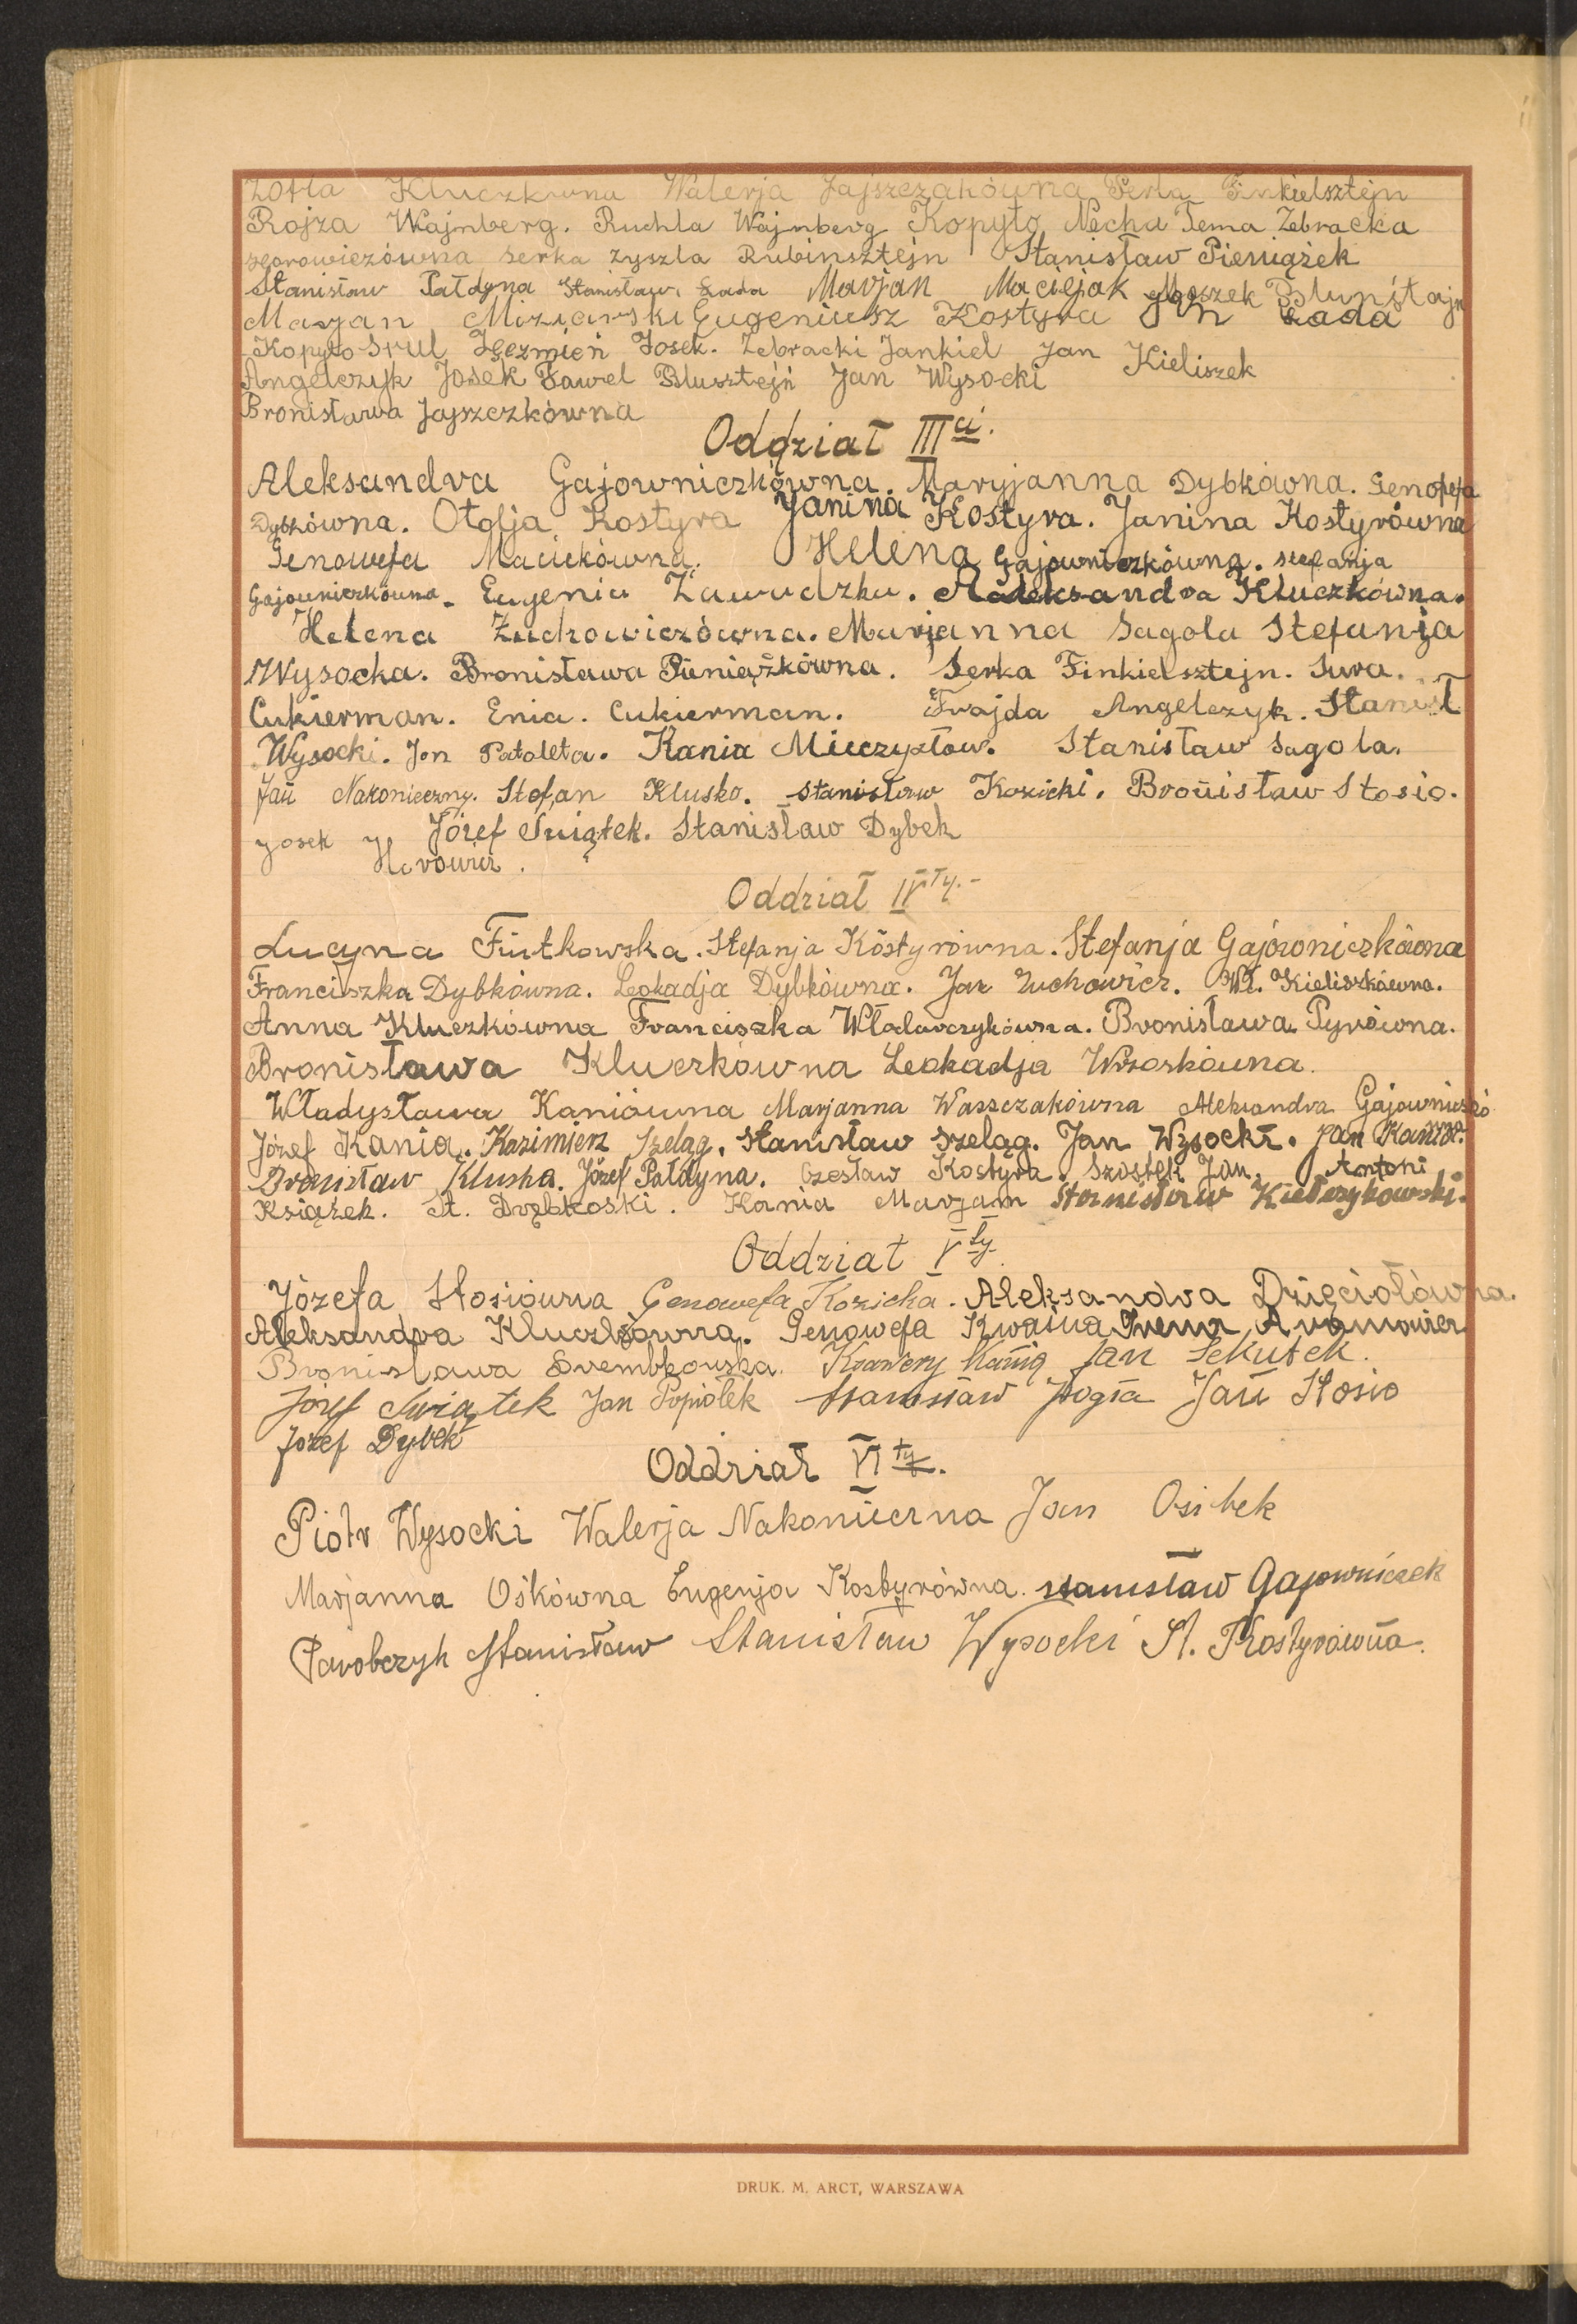 Zofia Kluczkówna Walerja Jajszczakówna Perla Finkielsztejn
Rojza Wajnberg. Ruchla Wajnberg Kopyto Necha Tema Zebracka
Serka Zyszla Rubinsztejn Stanisław Pieniążek
Stanisław Pałdyna Stanisław Łada Marjan Maciejak Moszek Blumsztajn
Maryan Miziarski Eugeniusz Kostyra Jan Łada
Kopyto Srul Jęczmień Josek. Zebracki Jankiel Jan Kieliszek
Angelczyk Josek Paweł Blusztejn Jan Wysocki
Bronisława Jajszczkówna
Oddział III ci.
Aleksandra Gajowniczkówna. Maryjanna Dybkówna. Genofefa
Dybkówna. Otolja Kostyra Janina Kostyra. Janina Kostyrówna
Genowefa Maciekówna. Helena Gajowniczkówna. Stefanja
Gajowniczkówna. Eugenia Zawadzka. Aleksandra Kluczkówna.
Helena Żuchowiczówna. Marjanna Sagoła Stefanja
Wysocka. Bronisława Pieniążkówna. Serka Finkielsztejn. Sura.
Cukierman. Enia. Cukierman. Frajda Angelczyk. Stanisł
Wysocki. Jan Patoleta. Kania Mieczysław. Stanisław Sagola.
Jan Nakonieczny. Stefan Klusko. Stanisław Kozicki. Bronisław Stosio.
Josek Józef Świątek. Stanisław Dybek
Horowicz.
Oddział IV ty.-
Lucyna Fiutkowska. Stefanja Kostyrówna. Stefanja Gajowniczkówna
Franciszka Dybkówna. Leokadja Dybkówna. Jan Żuchowicz. Wł. Kieliszkówna.
Anna Kluczkówna Franciszka Włodarczykówna. Bronisława Pyrówna.
Bronisława Kluczkówna Leokadja Wrzoskówna.
Władysława Kaniówna Marjanna Waszczakówna Aleksandra Gajowniczkó
Józef Kania. Kazimierz Szeląg. Stanisław Szeląg. Jan Wysocki. Jan Kania.
Bronisław Kluska. Józef Pałdyna. Czesław Kostyra. Szostek Jan. Antoni
Książek. St. Drębkoski. Kania Marjan Stanisław Kiełczykowski.
Oddział V ty.
Józefa Stosiówna Genowefa Kozicka. Aleksandra Dzięciołówna.
Aleksandra Kluczkówna. Genowefa Kwaśna
Bronisława Drembkowska. Ksawery Kania Jan Sekutek.
Józef Świątek Jan Popiołek Stanisław Jan Stosio
Józef Dybek
Oddział VI ty.
Piotr Wysocki Walerja Nakonieczna Jan Osibek
Marjanna Ośkówna Eugenja Kostyrówna. Stanisław Gajowniczek
Parobczyk Stanisław Stanisław Wysocki St. Kostyrówna.
DRUK. M. ARCT, WARSZAWA